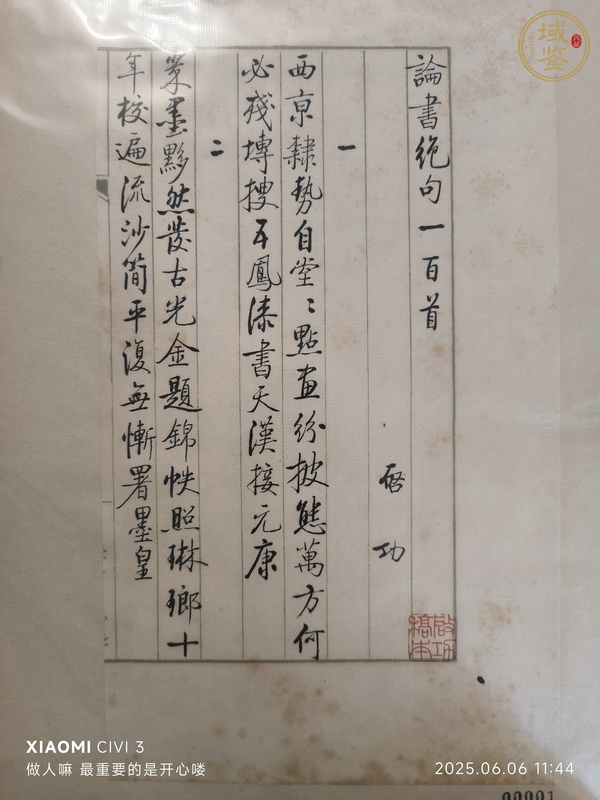 論書絕句一百首
啓功
一
西京隸勢自堂〻點畫紛披態萬方何
必殘塼搜五鳳漆書天漢接元康
二
翠墨黟然發古光金題錦帙照琳瑯十
年校遍流沙簡平復無慚署墨皇
啟功
橋本
域鉴
XIAOMI CIVI 3
做人嘛 最重要的是开心喽
2025.06.06 11:44
00001